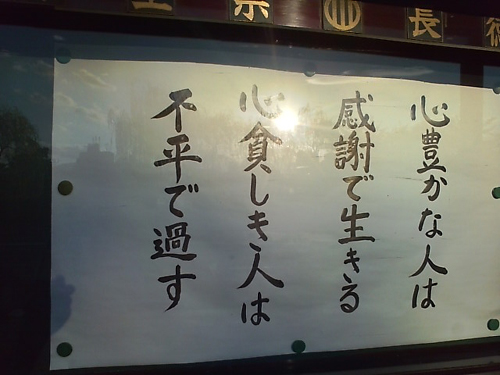 心豊かな人は
感謝で生きる
心貧しき人は
不平で過す